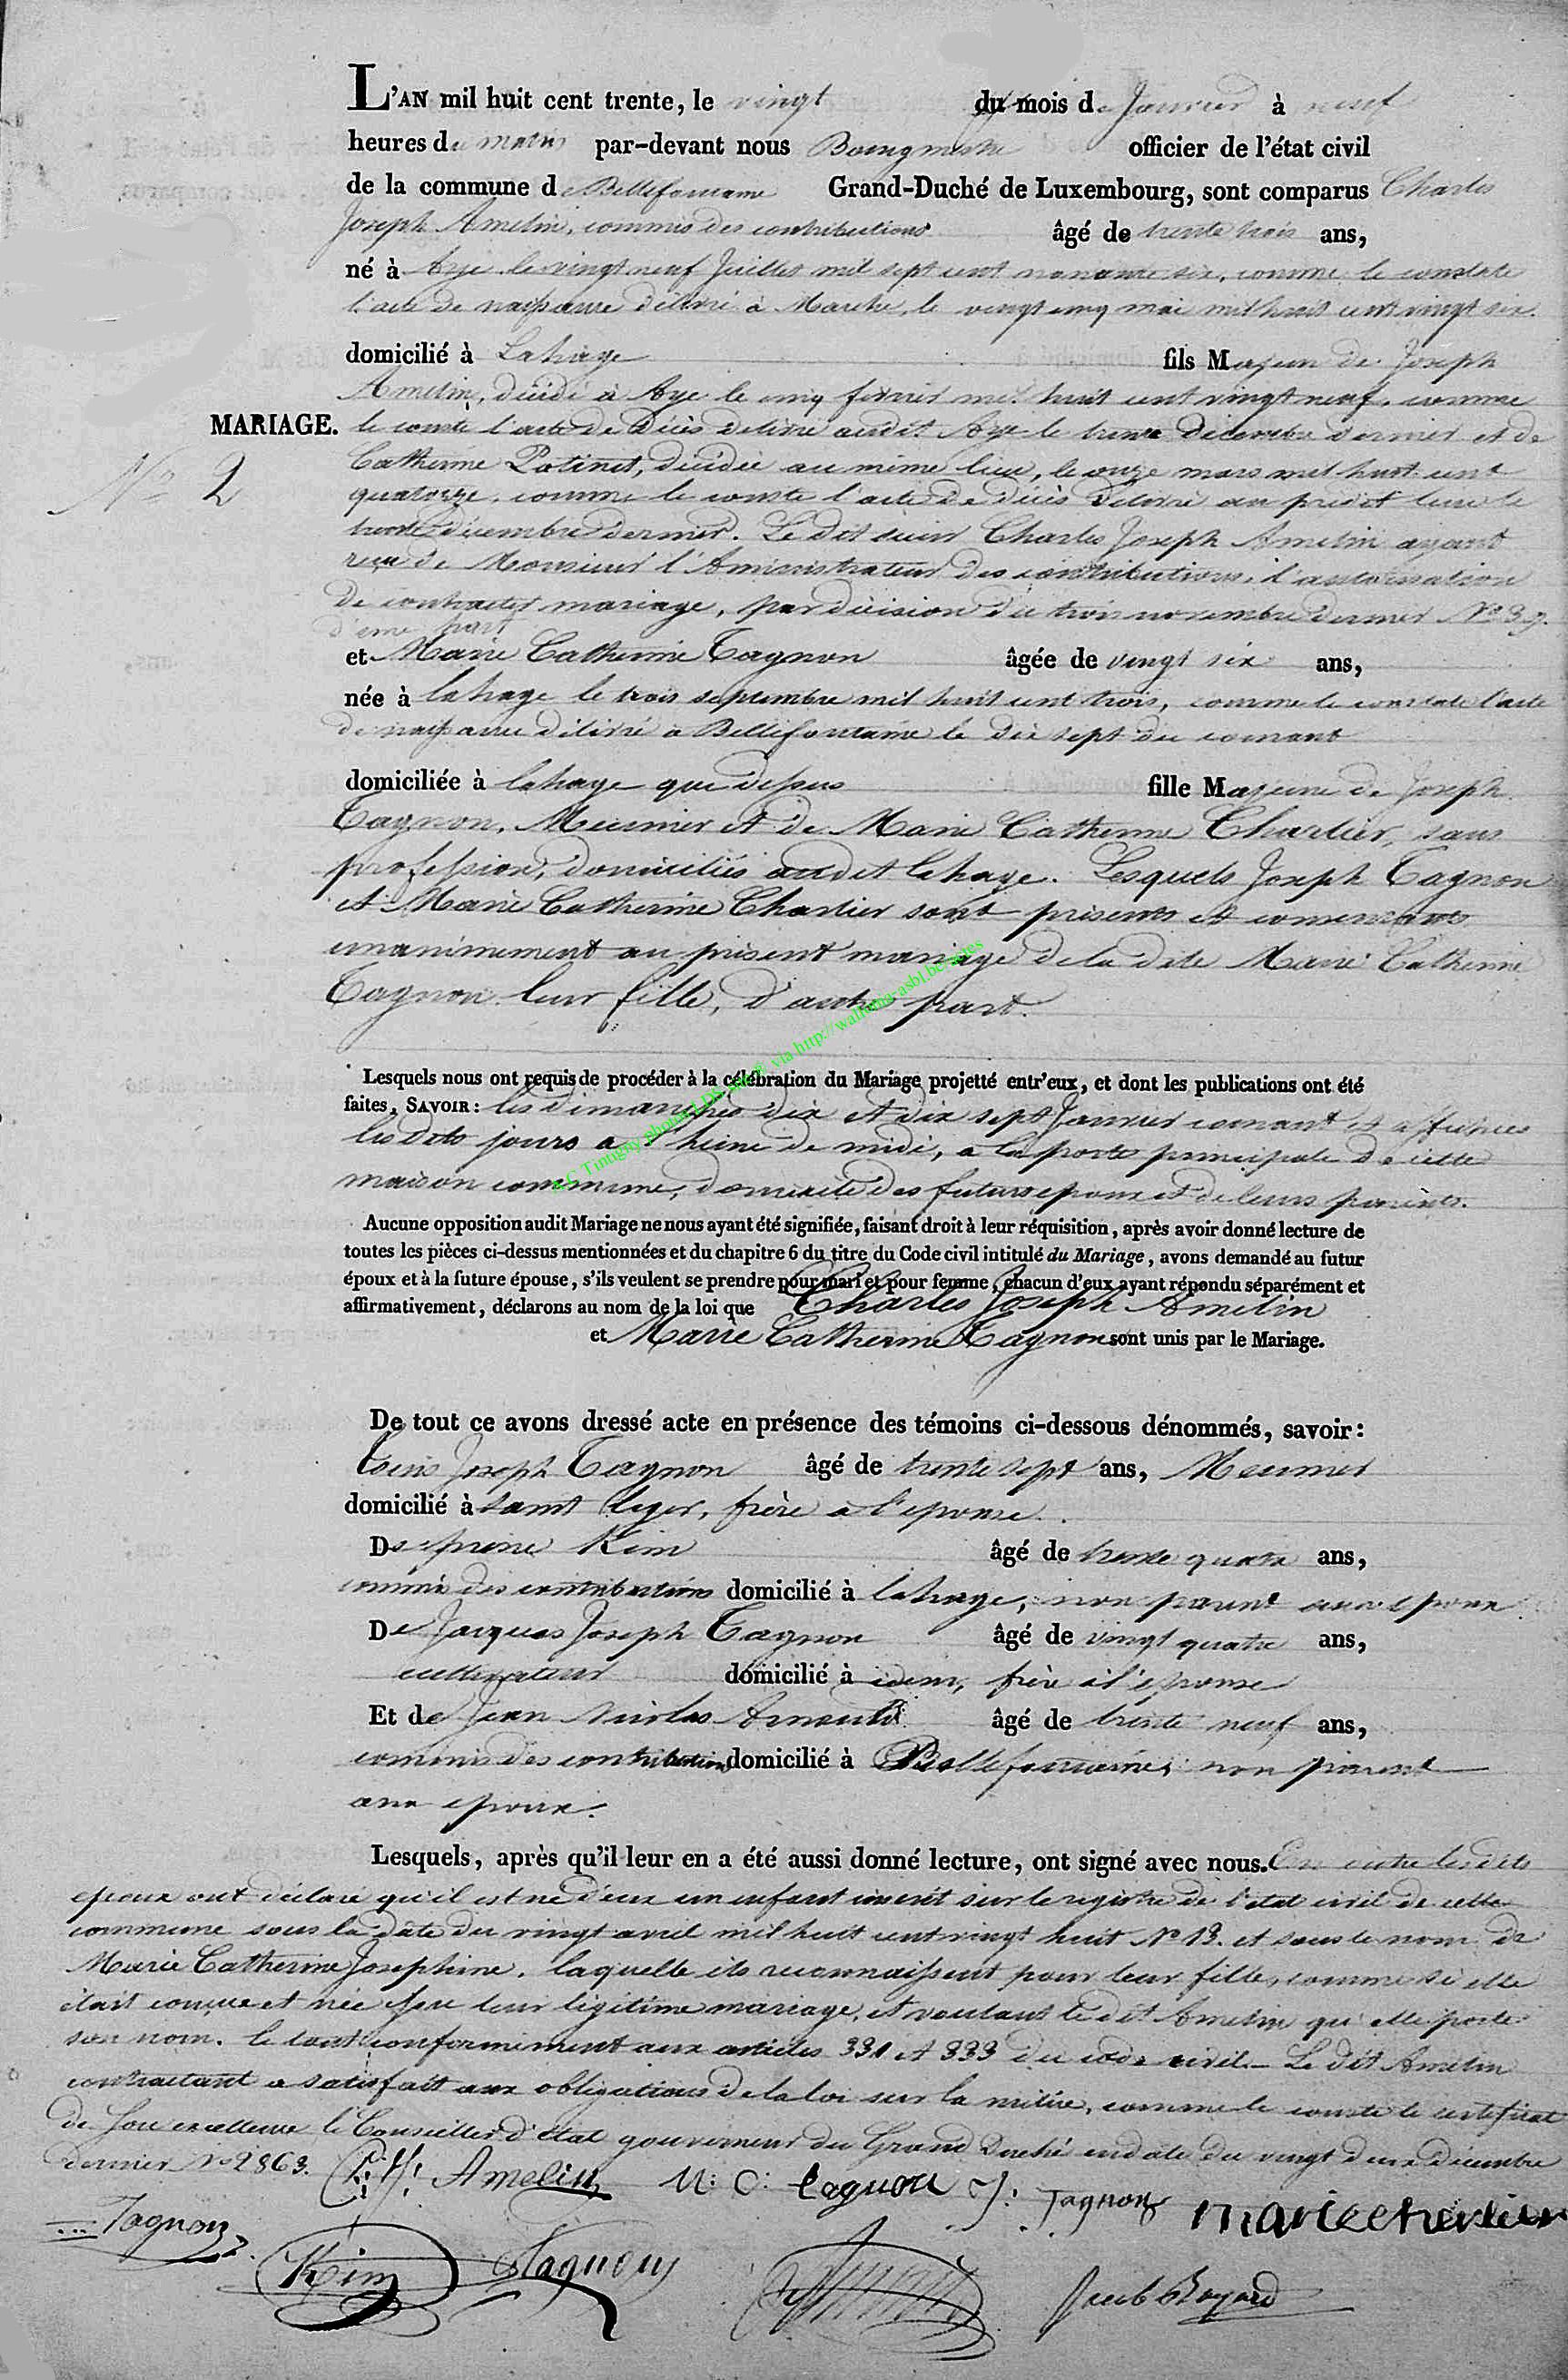 L'AN mil huit cent trente, le vingt du mois de Janvier à neuf
heures du matin par-devant nous Bourgmestre officier de l'état civil
de la commune de Bellefontaine Grand-Duché de Luxembourg, sont comparus Charles
Joseph Amelin, commis des contributions âgé de trente trois ans,
né à Aye le vingt neuf Juillet mil sept cent nonante six, comme le constate
l'acte de naissance délivré à Marche, le vingt cinq mai mil huit cent vingt six.
domicilié à Lahage fils Majeur de Joseph
Amelin, décédé à Aye le cinq février mil huit cent vingt neuf, comme
MARIAGE. le conste l'acte de décès délivré audit Aye le trente Décembre dernier et de
Catherine Potinet, décédée au même lieu, le onze mars mil huit cent
N° 2
quatorze, comme le conste l'acte de décès délivré au predit lieu le
trente décembre dernier. Le dit sieur Charles Joseph Amelin ayant
reçu de Monsieur l'Aministrateur des contributions, l'autorisation
de contracter mariage, par décision du trois novembre dernier N° 37.
d'une part
et Marie Catherine Tagnon âgée de vingt six ans,
née à lahage le trois septembre mil huit cent trois, comme le constate l'acte
de naissance délivré à Bellefontaine le dix sept du courant
domiciliée à lahage que dessus fille Majeure de Joseph
Tagnon, Meunier et de Marie Catherine Charlier, sans
profession, domiciliés audit lahage. Lesquels Joseph Tagnon
et Marie Catherine Charlier sont présents et consentants
unanimement au présent mariage de la dite Marie Catherine
Tagnon leur fille, d'autre part.
Lesquels nous ont requis de procéder à la célébration du Mariage projetté entr'eux, et dont les publications ont été
faites, SAVOIR: les dimanches dix et dix sept Janvier courant et affichées
lesdits jours a l'heure de midi, a la porte principale de cette
maison commune, domicile des futurs epoux et de leurs parents.
Aucune opposition audit Mariage ne nous ayant été signifiée, faisant droit à leur réquisition, après avoir donné lecture de
toutes les pièces ci-dessus mentionnées et du chapitre 6 du titre du Code civil intitulé du Mariage, avons demandé au futur
époux et à la future épouse, s'ils veulent se prendre pour mari et pour femme, chacun d'eux ayant répondu séparément et
affirmativement, déclarons au nom de la loi que Charles Joseph Amelin
et Marie Catherine Tagnon sont unis par le Mariage.
De tout ce avons dressé acte en présence des témoins ci-dessous dénommés, savoir:
Louis Joseph Tagnon âgé de trente sept ans, Meunier
domicilié à Saint Léger, frère a l'epouse.
De Kim âgé de trente quatre ans,
commis des contributions domicilié à lahage, non parent aux epoux
De Jacques Joseph Tagnon âgé de vingt quatre ans,
cultivateur domicilié à idem, frère à l'epouse
Et de Jean Nicolas Arnould âgé de trente neuf ans,
commis des contributions domicilié à Bellefontaine, non parent
aux epoux.
Lesquels, après qu'il leur en a été aussi donné lecture, ont signé avec nous. En outre lesdits
epoux ont déclaré qu'il est né d'eux un enfant inscrit sur le registre de l'etat civil de cette
commune sous la date du vingt avril mil huit cent vingt huit N° 13. et sous le nom de
Marie Catherine Josephine, laquelle ils reconnaissent pour leur fille, comme si elle
était conçue et née leur legitime mariage, et voulant le dit Amelin qu'elle porte
son nom. le tout conformément aux articles 331 et 333 du code civil. Le dit Amelin
contractant a satisfait aux obligations de la loi sur la milice, comme le conste le certificat
de Son excellence le Conseiller d'état gouverneur du Grand Duché en date du vingt deux décembre
dernier N° 2863. Amelin M: C: tagnon J: Tagnon marie charlier
Tagnon
Kim Tagnon
A.C Tintigny photos LDS via http://wallonia-asbl.be/actes